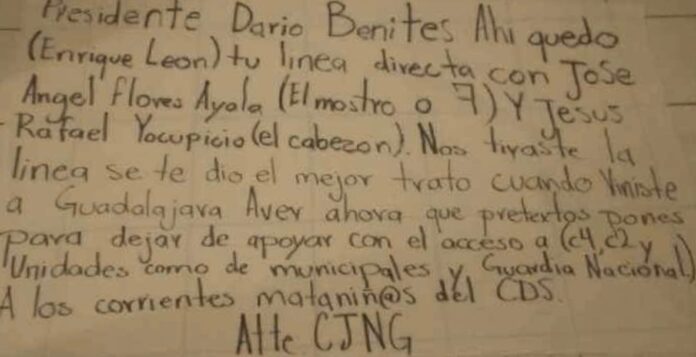 Presidente Dario Benites Ahi quedo
(Enrique Leon) tu linea directa con Jose
Angel Flores Ayala (El mostro o 7) Y Jesus
Rafael Yocupicio (el cabezon). Nos tiraste la
linea se te dio el mejor trato cuando Viniste
a Guadalajara Aver ahora que pretextos pones
para dejar de apoyar con el acceso a (c4, c2 y
Unidades como de municipales y Guardia Nacional)
A los corrientes matanin@s del CDS.
Atte CJNG